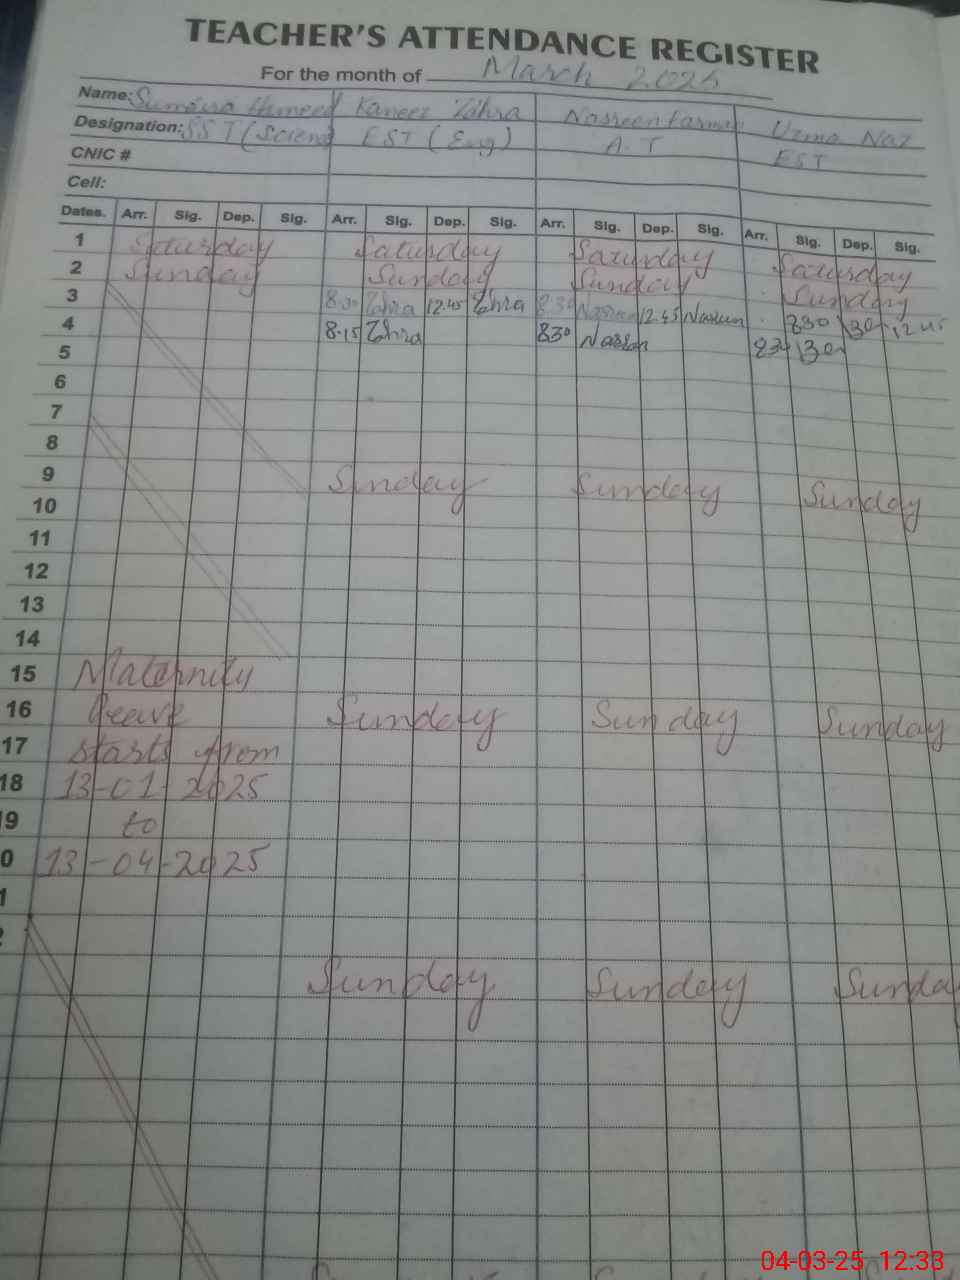 TEACHER'S ATTENDANCE REGISTER
For the month of March 2025
Name: Sumaira Hameed Kaneez Zahra Nasreen Farman Uzma Naz
Designation: SST (Science) EST (Eng) A.T EST
CNIC #
Cell:
Dates. Arr. Sig. Dep. Sig. Arr. Sig. Dep. Sig. Arr. Sig. Dep. Sig. Arr. Sig. Dep. Sig.
1 Saturday Saturday Saturday Saturday
2 Sunday Sunday Sunday Sunday
3 8.30 Zahra 12.45 Zahra 8.30 Nasreen 12.45 Nasreen 830 12.45
4 8.15 Zahra 830 Nasreen 830
5
6
7
8
9 Sunday Sunday Sunday
10
11
12
13
14
15 Maternity
16 Leave Sunday Sunday Sunday
17 starts from
18 13-01-2025
9 to
0 13-04-2025
1
2
Sunday Sunday Sunda
04-03-25 12:33